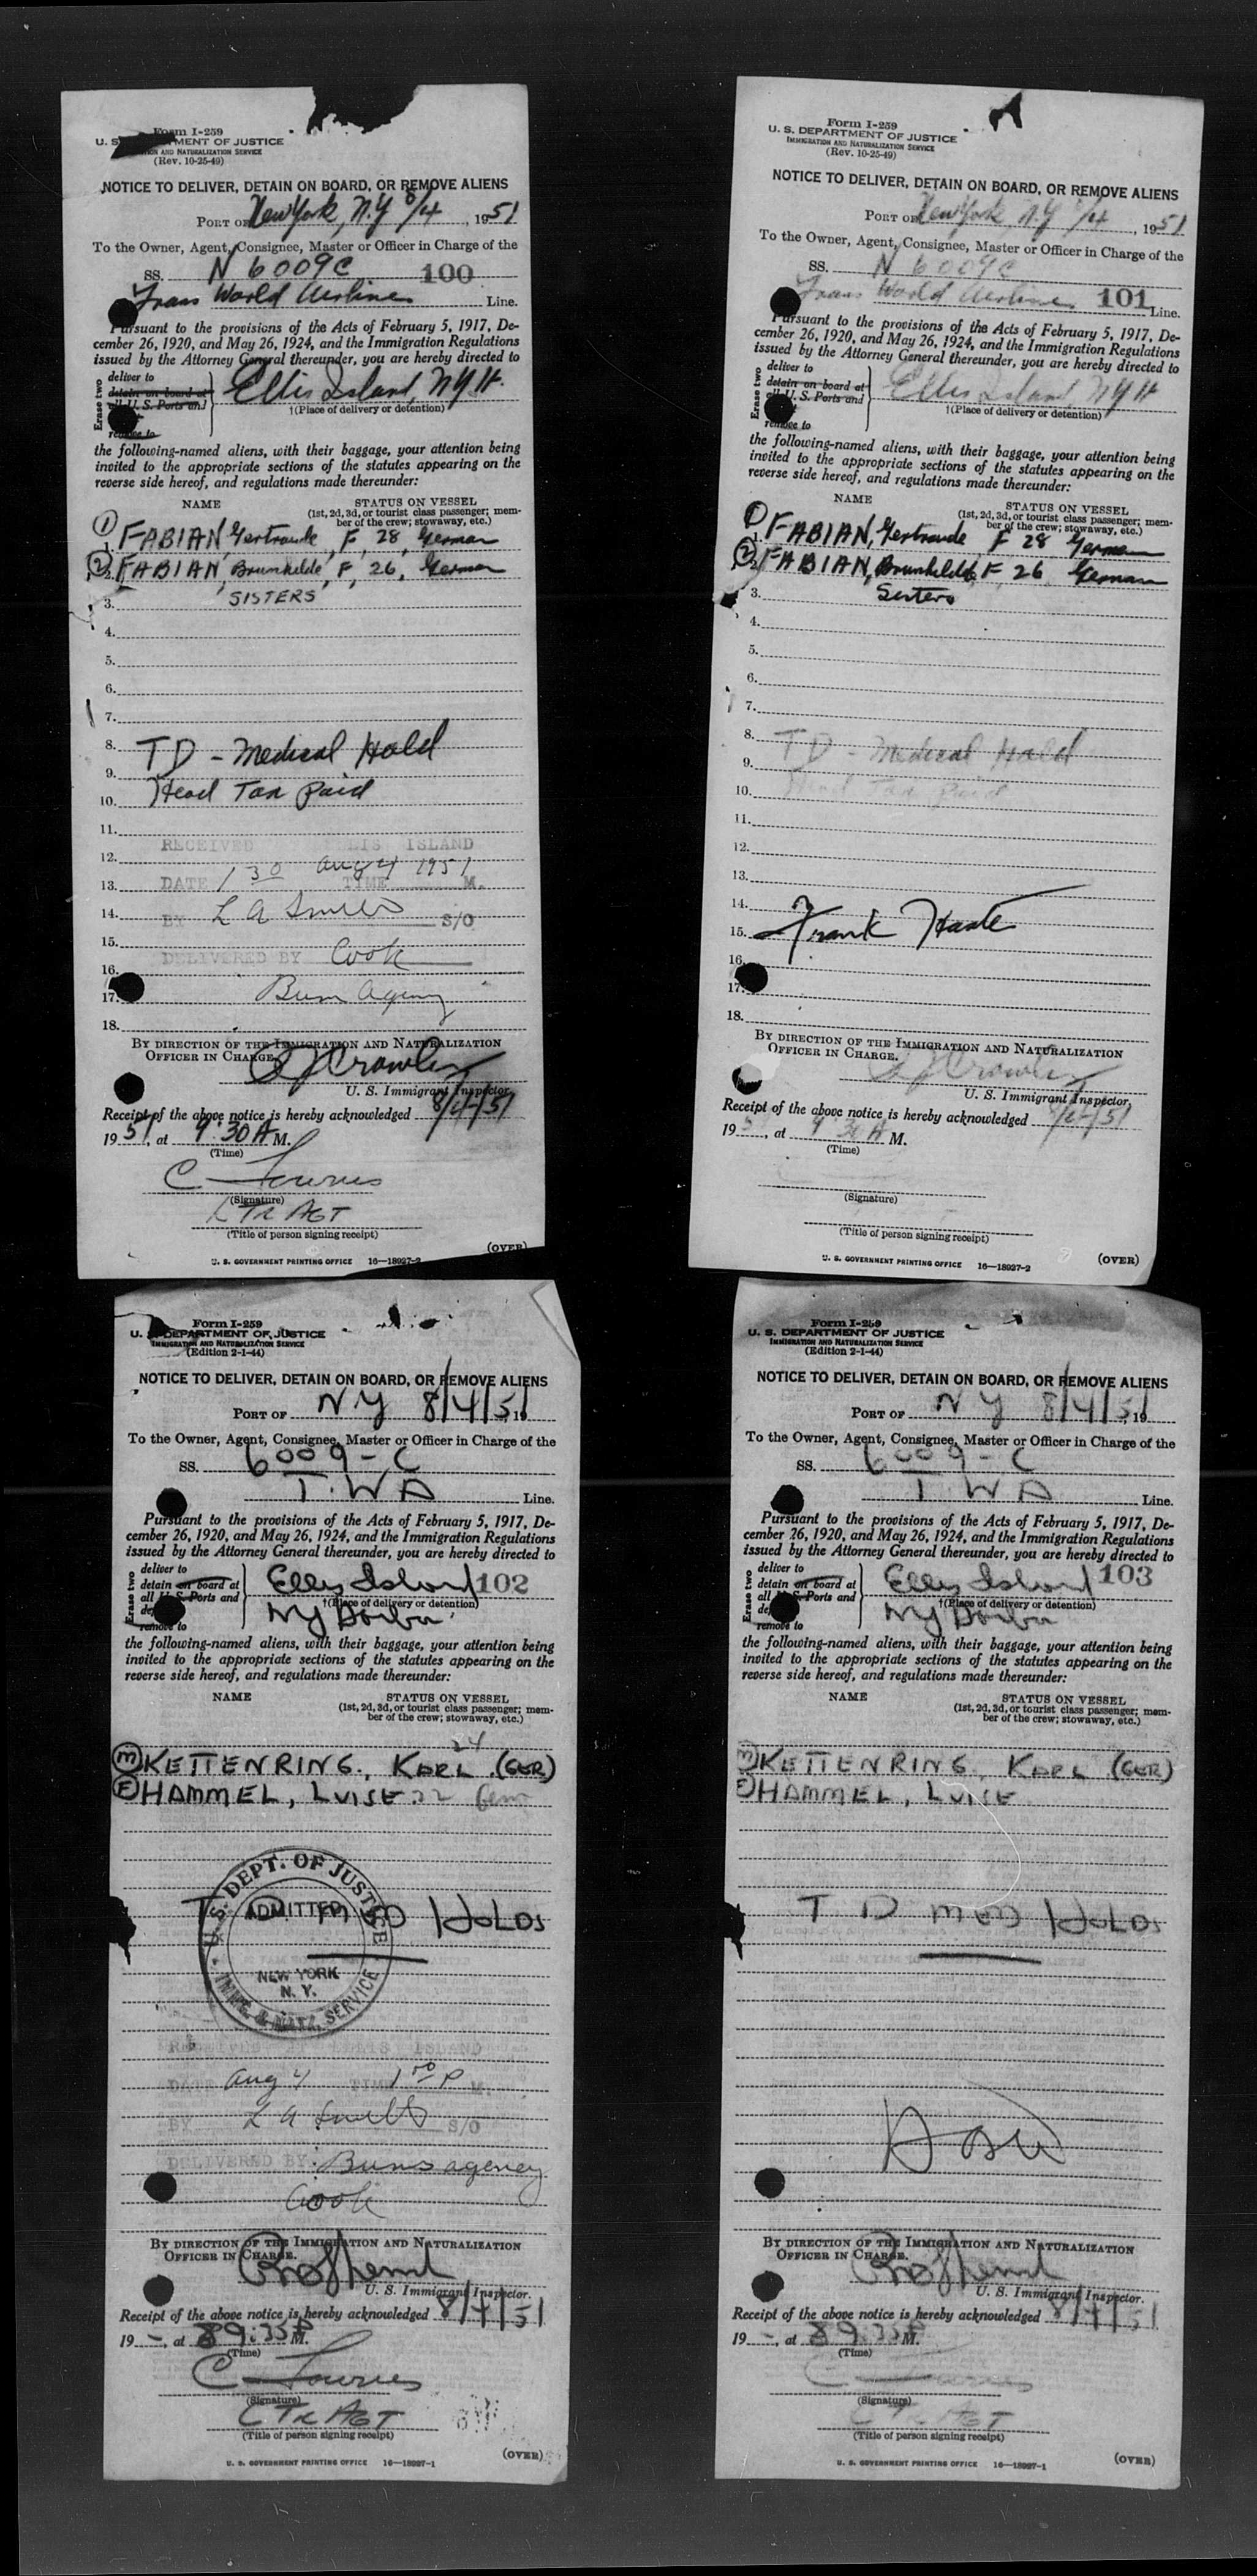 Form I-259
U. S. DEPARTMENT OF JUSTICE
IMMIGRATION AND NATURALIZATION SERVICE
(Rev. 10-25-49)
NOTICE TO DELIVER, DETAIN ON BOARD, OR REMOVE ALIENS
PORT OF New York, N.Y 8/4, 1951
To the Owner, Agent, Consignee, Master or Officer in Charge of the
SS. N 6009C 100
Trans World Airlines Line.
Pursuant to the provisions of the Acts of February 5, 1917, De-
cember 26, 1920, and May 26, 1924, and the Immigration Regulations
issued by the Attorney General thereunder, you are hereby directed to
Erase two
deliver to
detain on board at
all U. S. Ports and
remove to
Ellis Island, NYH.
†(Place of delivery or detention)
the following-named aliens, with their baggage, your attention being
invited to the appropriate sections of the statutes appearing on the
reverse side hereof, and regulations made thereunder:
NAME STATUS ON VESSEL
(1st, 2d, 3d, or tourist class passenger; mem-
ber of the crew; stowaway, etc.)
1 1. FABIAN, Gertraude, F, 28, German
2 2. FABIAN, Brunhilde, F, 26, German
3. SISTERS
4.
5.
6.
7.
8. TD - Medical Hold
9.
10. Head Tax Paid
11.
RECEIVED ELLIS ISLAND
12.
13. DATE 1 30 Aug 4 1951 TIME M.
14. BY L A S/O
15.
DELIVERED BY Cook
16.
17. Burns Agency
18.
BY DIRECTION OF THE IMMIGRATION AND NATURALIZATION
OFFICER IN CHARGE. Crowley
U. S. Immigrant Inspector.
Receipt of the above notice is hereby acknowledged 8/4/51
1951, at 9:30 A M.
(Time)
C
(Signature)
TR AGT
(Title of person signing receipt)
(OVER)
U. S. GOVERNMENT PRINTING OFFICE 16—18927-2
Form I-259
U. S. DEPARTMENT OF JUSTICE
IMMIGRATION AND NATURALIZATION SERVICE
(Rev. 10-25-49)
NOTICE TO DELIVER, DETAIN ON BOARD, OR REMOVE ALIENS
PORT OF New York, N.Y 8/4, 1951
To the Owner, Agent, Consignee, Master or Officer in Charge of the
SS. N 6009C
Trans World Airlines 101 Line.
Pursuant to the provisions of the Acts of February 5, 1917, De-
cember 26, 1920, and May 26, 1924, and the Immigration Regulations
issued by the Attorney General thereunder, you are hereby directed to
Erase two
deliver to
detain on board at
all U. S. Ports and
remove to
Ellis Island, NYH
†(Place of delivery or detention)
the following-named aliens, with their baggage, your attention being
invited to the appropriate sections of the statutes appearing on the
reverse side hereof, and regulations made thereunder:
NAME STATUS ON VESSEL
(1st, 2d, 3d, or tourist class passenger; mem-
ber of the crew; stowaway, etc.)
1 1. FABIAN, Gertraude F 28 German
2 2. FABIAN, Brunhilde F 26 German
3. Sisters
4.
5.
6.
7.
8. TD - Medical Hold
9.
10. Head Tax Paid
11.
12.
13.
14.
15. Frank
16.
17.
18.
BY DIRECTION OF THE IMMIGRATION AND NATURALIZATION
OFFICER IN CHARGE. Crowley
U. S. Immigrant Inspector.
Receipt of the above notice is hereby acknowledged 8/4/51
1951, at 9:30 A M.
(Time)
(Signature)
(Title of person signing receipt)
U. S. GOVERNMENT PRINTING OFFICE 16—18927-2 (OVER)
Form I-259
U. S. DEPARTMENT OF JUSTICE
IMMIGRATION AND NATURALIZATION SERVICE
(Edition 2-1-44)
NOTICE TO DELIVER, DETAIN ON BOARD, OR REMOVE ALIENS
PORT OF N Y 8/4/51 19
To the Owner, Agent, Consignee, Master or Officer in Charge of the
SS. 6009-C
T.W A Line.
Pursuant to the provisions of the Acts of February 5, 1917, De-
cember 26, 1920, and May 26, 1924, and the Immigration Regulations
issued by the Attorney General thereunder, you are hereby directed to
Erase two
deliver to
detain on board at
all U. S. Ports and
remove to
Ellis Island 102
†(Place of delivery or detention)
NY Harbor
the following-named aliens, with their baggage, your attention being
invited to the appropriate sections of the statutes appearing on the
reverse side hereof, and regulations made thereunder:
NAME STATUS ON VESSEL
(1st, 2d, 3d, or tourist class passenger; mem-
ber of the crew; stowaway, etc.)
24
M KETTENRING, KARL (GER)
F HAMMEL, LUISE 22 Germ
T D MED HOLDS
U. S. DEPT. OF JUSTICE
ADMITTED
NEW YORK
N. Y.
IMMI. & NATZ. SERVICE
RECEIVED AT ELLIS ISLAND
DATE Aug 4 TIME 1 30 P M.
BY L A S/O
DELIVERED BY Burns agency
Cook
BY DIRECTION OF THE IMMIGRATION AND NATURALIZATION
OFFICER IN CHARGE.
U. S. Immigrant Inspector.
Receipt of the above notice is hereby acknowledged 8/4/51
19 -, at 9:35 M.
(Time)
C
(Signature)
TR AGT
(Title of person signing receipt)
(OVER)
U. S. GOVERNMENT PRINTING OFFICE 16—18927-1
Form I-259
U. S. DEPARTMENT OF JUSTICE
IMMIGRATION AND NATURALIZATION SERVICE
(Edition 2-1-44)
NOTICE TO DELIVER, DETAIN ON BOARD, OR REMOVE ALIENS
PORT OF N Y 8/4/51 19
To the Owner, Agent, Consignee, Master or Officer in Charge of the
SS. 6009-C
T W A Line.
Pursuant to the provisions of the Acts of February 5, 1917, De-
cember 26, 1920, and May 26, 1924, and the Immigration Regulations
issued by the Attorney General thereunder, you are hereby directed to
Erase two
deliver to
detain on board at
all U. S. Ports and
remove to
Ellis Island 103
†(Place of delivery or detention)
NY Harbor
the following-named aliens, with their baggage, your attention being
invited to the appropriate sections of the statutes appearing on the
reverse side hereof, and regulations made thereunder:
NAME STATUS ON VESSEL
(1st, 2d, 3d, or tourist class passenger; mem-
ber of the crew; stowaway, etc.)
M KETTENRING, KARL (GER)
F HAMMEL, LUISE
T D MED HOLDS
BY DIRECTION OF THE IMMIGRATION AND NATURALIZATION
OFFICER IN CHARGE.
U. S. Immigrant Inspector.
Receipt of the above notice is hereby acknowledged 8/4/51
19 -, at 9:35 M.
(Time)
(Signature)
(Title of person signing receipt)
(OVER)
U. S. GOVERNMENT PRINTING OFFICE 16—18927-1